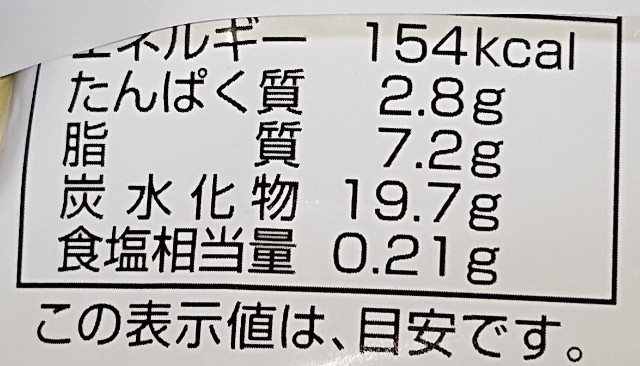 エネルギー 154kcal
たんぱく質 2.8g
脂質 7.2g
炭水化物 19.7g
食塩相当量 0.21g
この表示値は、目安です。